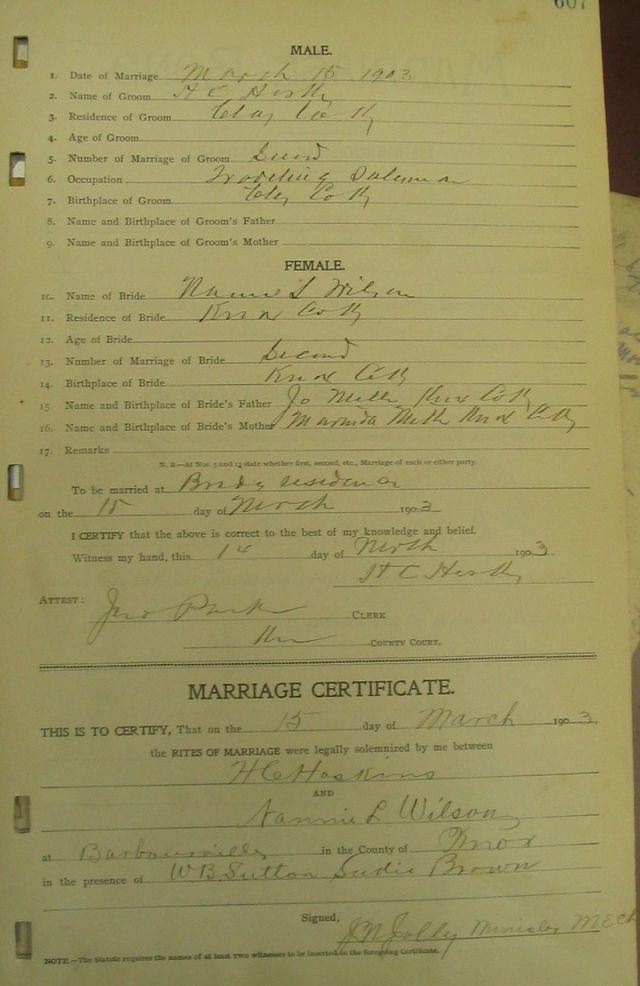 607
MALE.
1. Date of Marriage March 15 1903
2. Name of Groom H C
3. Residence of Groom Clay Co Ky
4. Age of Groom
5. Number of Marriage of Groom
6. Occupation Traveling Salesman
7. Birthplace of Groom Clay Co Ky
8. Name and Birthplace of Groom's Father
9. Name and Birthplace of Groom's Mother
FEMALE.
10. Name of Bride Nannie L Wilson
11. Residence of Bride Knox Co Ky
12. Age of Bride
13. Number of Marriage of Bride Second
14. Birthplace of Bride Knox Co Ky
15. Name and Birthplace of Bride's Father Jo Knox Co Ky
16. Name and Birthplace of Bride's Mother Knox Co Ky
17. Remarks
N. B.—At Nos. 5 and 13 state whether first, second, etc., Marriage of each or either party.
To be married at
on the 15 day of March 1903
I CERTIFY that the above is correct to the best of my knowledge and belief.
Witness my hand, this day of March 1903
H C
ATTEST: Jno CLERK
COUNTY COURT.
MARRIAGE CERTIFICATE.
THIS IS TO CERTIFY, That on the 15 day of March 1903,
the RITES OF MARRIAGE were legally solemnized by me between
H C Hoskins
AND
Nannie L Wilson
at Barbourville in the County of Knox
in the presence of W B Sutton Sudie Brown
Signed,
Jolly Minister M E Ch
NOTE.—The Statute requires the names of at least two witnesses to be inserted in the foregoing Certificate.